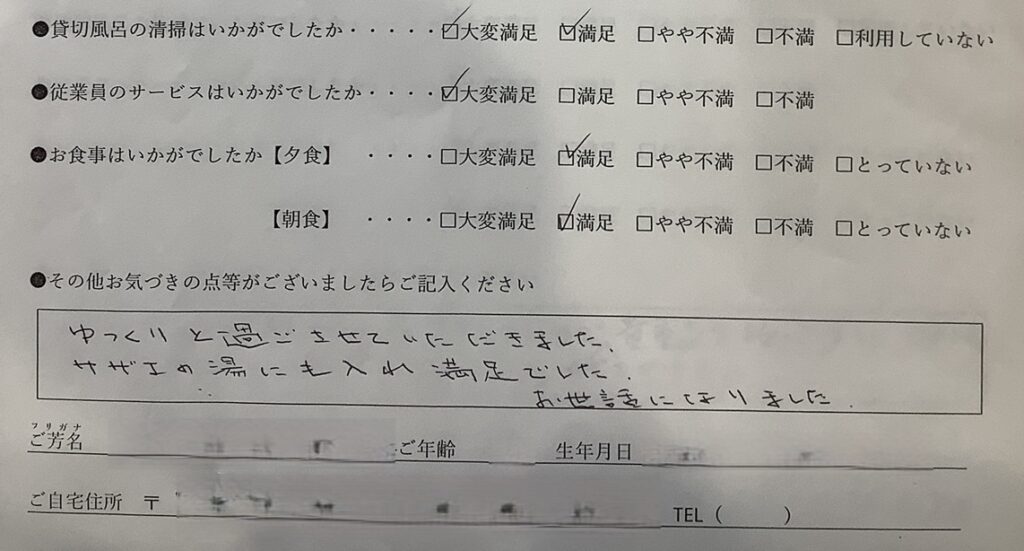 ●貸切風呂の清掃はいかがでしたか・・・・・☑大変満足 ☑満足 □やや不満 □不満 □利用していない
●従業員のサービスはいかがでしたか・・・・☑大変満足 □満足 □やや不満 □不満
●お食事はいかがでしたか【夕食】 ・・・・□大変満足 ☑満足 □やや不満 □不満 □とっていない
【朝食】 ・・・・□大変満足 ☑満足 □やや不満 □不満 □とっていない
●その他お気づきの点等がございましたらご記入ください
ゆっくりと過ごさせていただきました。
サザエの湯にも入れ満足でした。
お世話になりました。
フリガナ
ご芳名 ご年齢 生年月日
ご自宅住所 〒 TEL( )